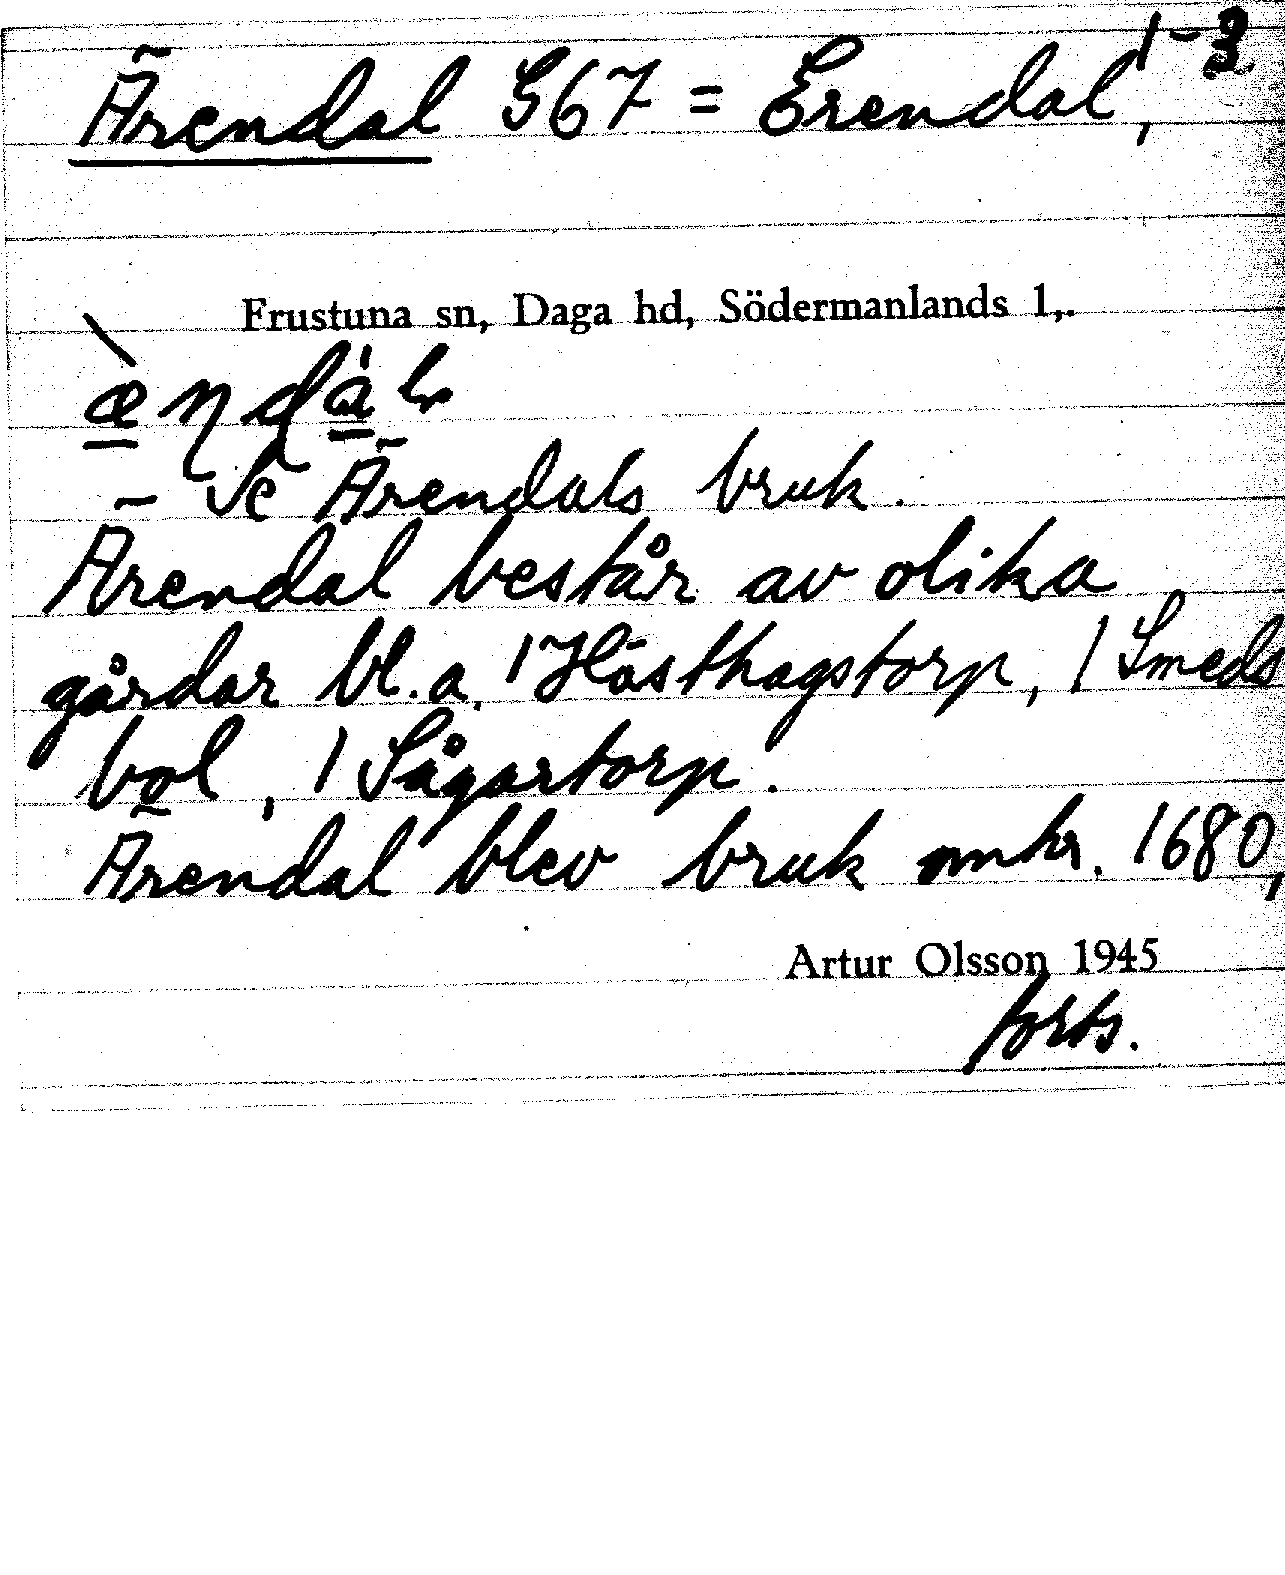 Ärendal G67 = Erendal, 1-3
Frustuna sn, Daga hd, Södermanlands l,.
Se Ärendals bruk.
Ärendal består av olika
gårdar bl.a. / Hästhagstorp, / Smeds
bol, / Sågartorp.
Ärendal blev bruk omkr. 1680,
Artur Olsson 1945
forts.